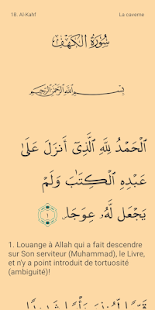 18. Al-Kahf La caverne
سُورَةُ الكَهْفِ
بِسْمِ اللَّهِ الرَّحْمَٰنِ الرَّحِيمِ
ٱلْحَمْدُ لِلَّهِ ٱلَّذِىٓ أَنزَلَ عَلَىٰ
عَبْدِهِ ٱلْكِتَـٰبَ وَلَمْ
يَجْعَل لَّهُۥ عِوَجَا ۜ ١
1. Louange à Allah qui a fait descendre
sur Son serviteur (Muhammad), le Livre,
et n'y a point introduit de tortuosité
(ambiguïté)!